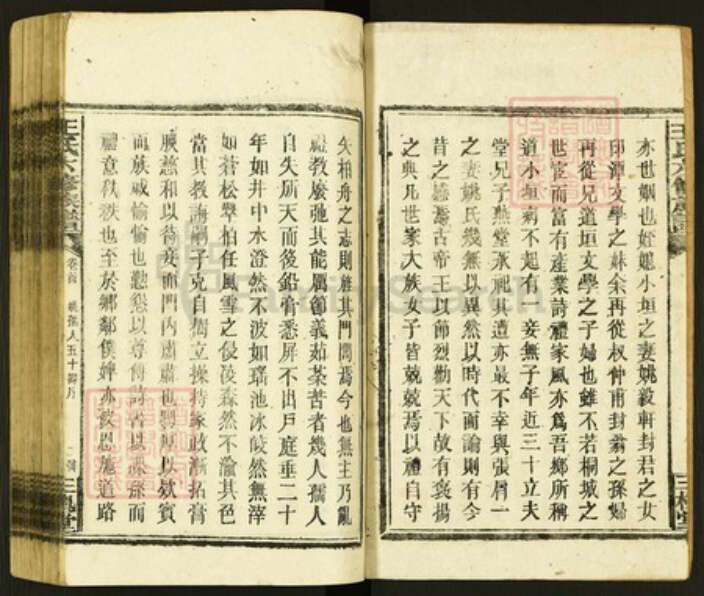 亦也姻也姪媳小垣之妻姚毅軒封君之女
印潭文學之妹余再從叔仲甫封翁之孫婦
再從兄道垣文學之子婦也雖不若桐城之
世宦而富有產業詩禮家風亦為吾鄉所稱
道小垣病不起有一妾無子年近三十立夫
堂兄子燕堂承祀其遭亦最不幸與張屑一
之妻姚氏幾無以異然以時代而論則有今
昔之感焉古帝王以節烈勸天下故有褒揚
之典凡世家大族女子皆兢兢焉以禮自守
矢柏舟之志則雖其門閭焉今也無主乃亂
禮教廢弛其能厲節義茹荼苦者幾人孺人
自失所天而後鉛膏悉屏不出戶庭垂二十
年如井中水澄然不波如瑤池冰皎然無滓
如蒼松翠柏任風雪之侵凌森然不渝其色
當其教誨嗣子克自樹立操持家政漸拓膏
腴慈和以待妾而門內肅肅也興厚以欵賓
而族戚愉愉也懃懇以尊傅詩書以課孫而
禮意秩秩也至於鄉鄰僕婢亦被恩施道路
王氏六修族譜
卷首
姚孺人五十壽序
三槐堂